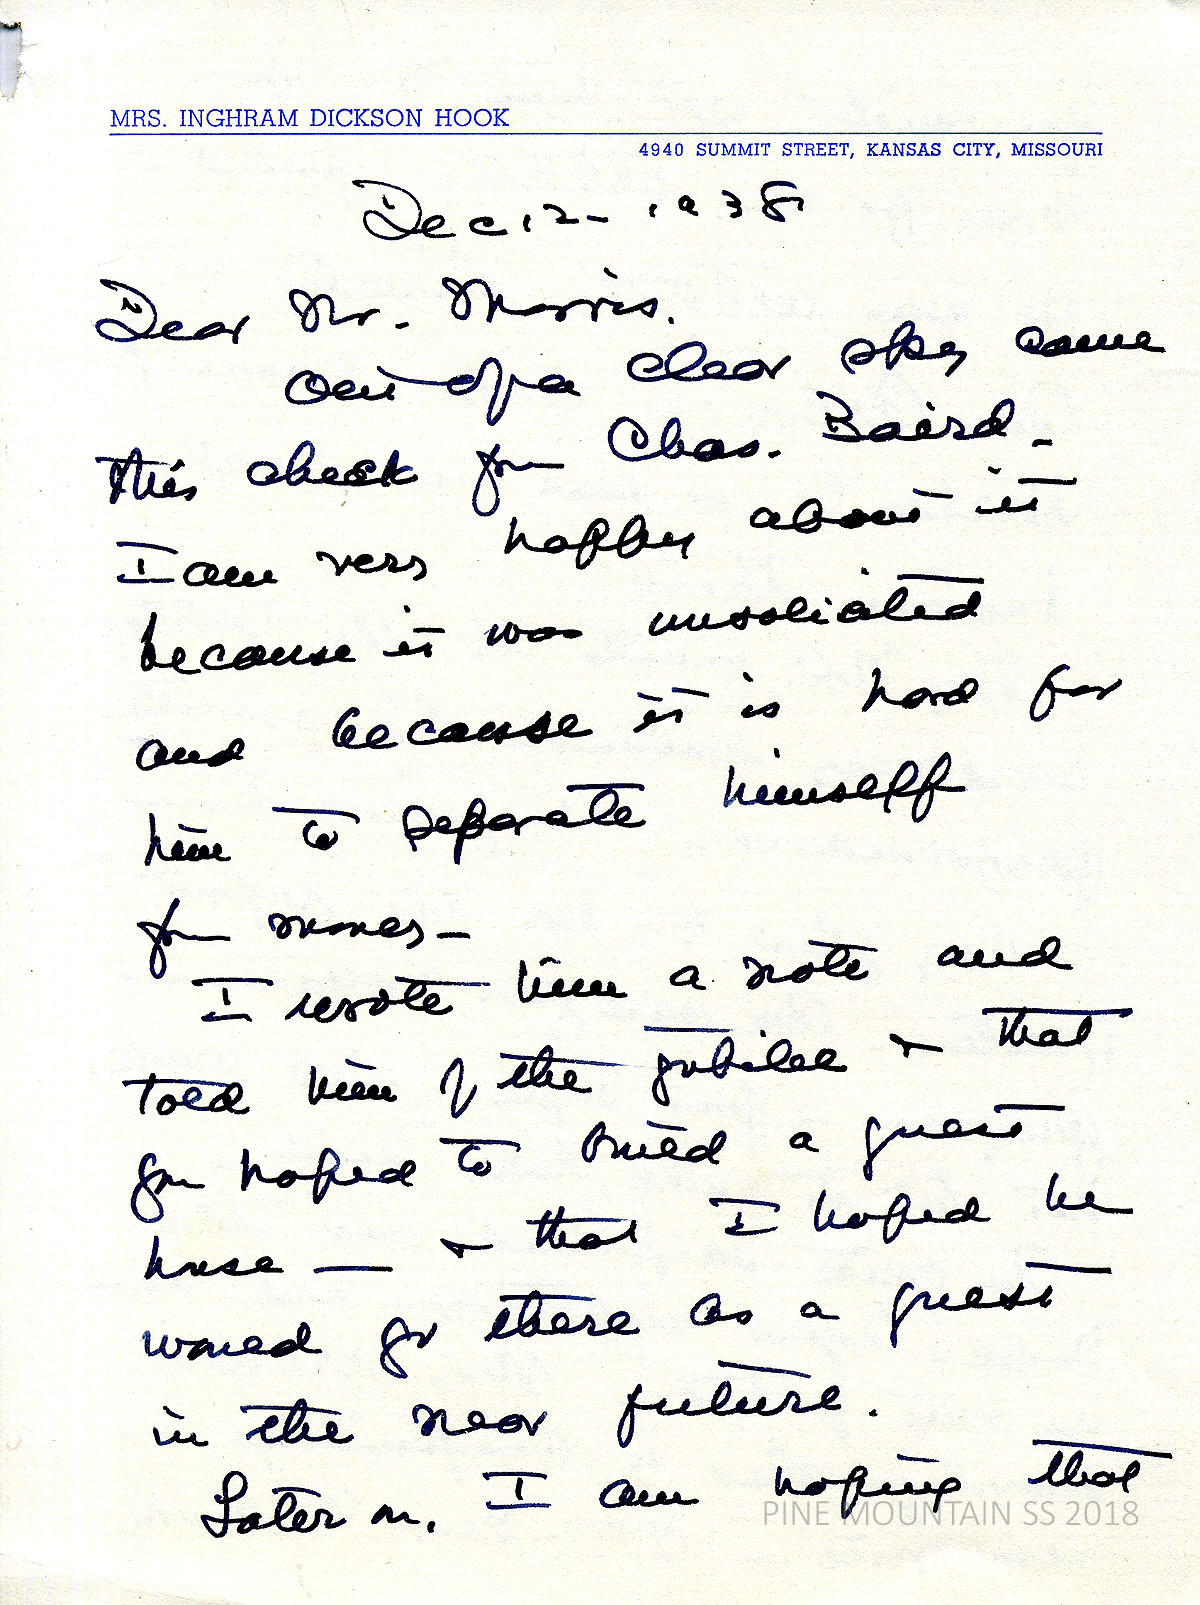 MRS. INGHRAM DICKSON HOOK
4940 SUMMIT STREET, KANSAS CITY, MISSOURI
Dec 12 - 1938
Dear Mr. Morris.
Out of a clear sky came
this check from Chas. Baird -
I am very happy about it
because it was unsolicited
and because it is hard for
him to separate himself
from money -
I wrote him a note and
told him of the jubilee & that
you hoped to build a guest
house — & that I hoped he
would go there as a guest
in the near future.
Later on, I am hoping that
PINE MOUNTAIN SS 2018